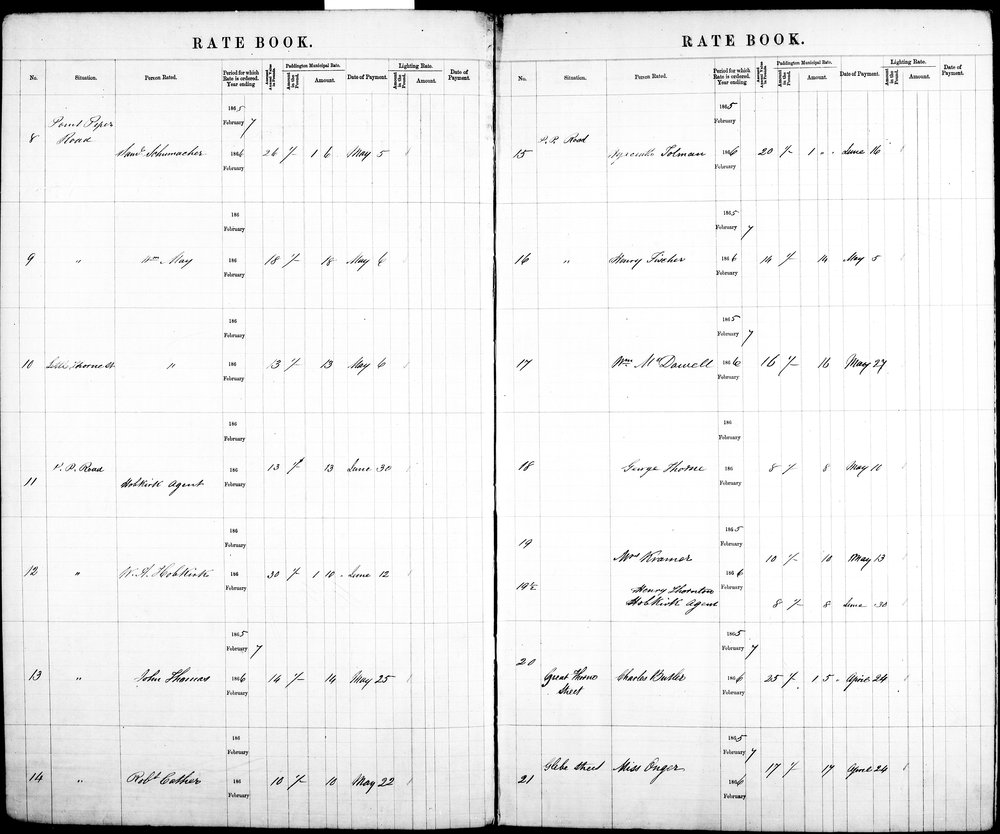 RATE BOOK.
No. Situation. Person Rated. Period for which Rate is ordered. Year ending Assessed Annual Value in Pounds Paddington Municipal Rate. Amount in the Pound. Amount. Date of Payment. Lighting Rate. Amount in the Pound. Amount. Date of Payment
1865
Point Piper February 7
8 Road
Saml Schumacher 1866 26 1 6 May 5
February
186
February
9 " Wm May 186 18 18 May 6
February
186
February
10 Little Thorne St " 186 13 13 May 6
February
186
February
P. P. Road 186 13 13 June 30
11 Hobkirk Agent February
186
February
12 " W. A. Hobkirk 186 30 1 10 June 12
February
1865
February 7
13 " John Thomas 1866 14 14 May 25
February
186
February
14 " Robt Cather 186 10 10 May 22
February
RATE BOOK.
No. Situation. Person Rated. Period for which Rate is ordered. Year ending Assessed Annual Value in Pounds Paddington Municipal Rate. Amount in the Pound. Amount. Date of Payment. Lighting Rate. Amount in the Pound. Amount. Date of Payment.
1865
February
P. P. Road
15 Tolman 1866 20 1 " " June 16
February
1865
February 7
16 " Henry Fischer 1866 14 14 May 5
February
1865
February 7
17 Wm McDowell 1866 16 16 May 27
February
186
February
18 George Thorne 186 8 8 May 11
February
1865
19 February
Mrs Kramer 10 10 May 13
1866
19½ Henry Thornton February
Hobkirk Agent 8 8 June 30
1865
February 7
20
Great Thorne Charles Butler 1866 25 1 5 " April 24
Street February
1865
February 7
Glebe Street Miss Onger 17 17 April 24
21 1866
February